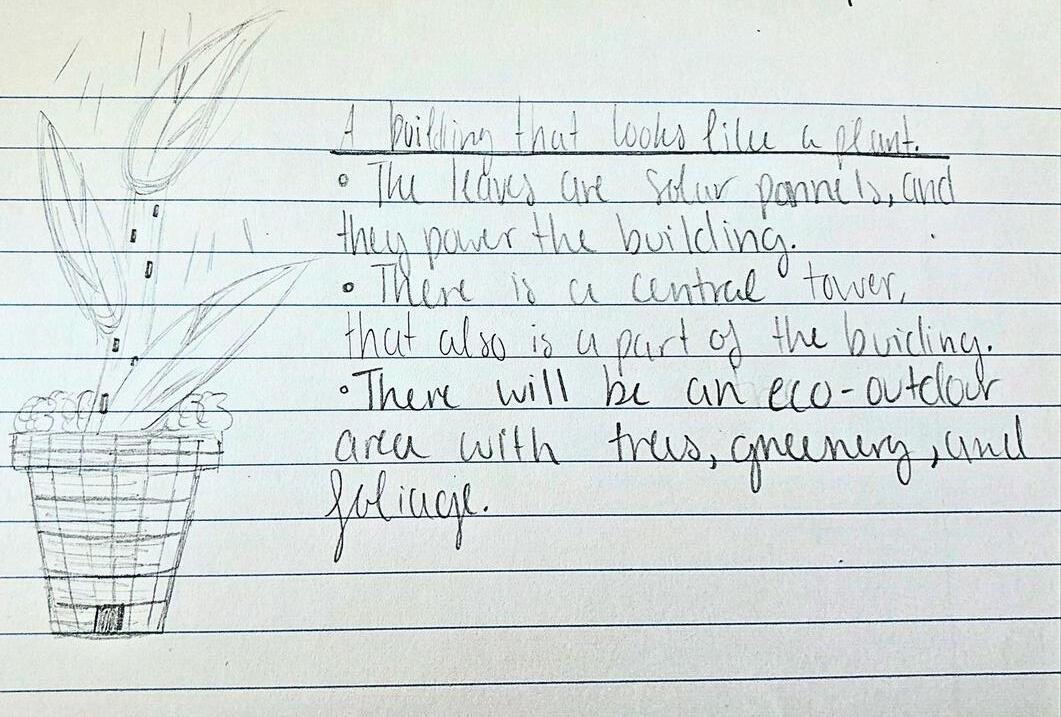 A building that looks like a plant.
• The leaves are solar pannels, and
they power the building.
• There is a central tower,
that also is a part of the building.
• There will be an eco-outdour
area with trees, greenery, and
foliage.